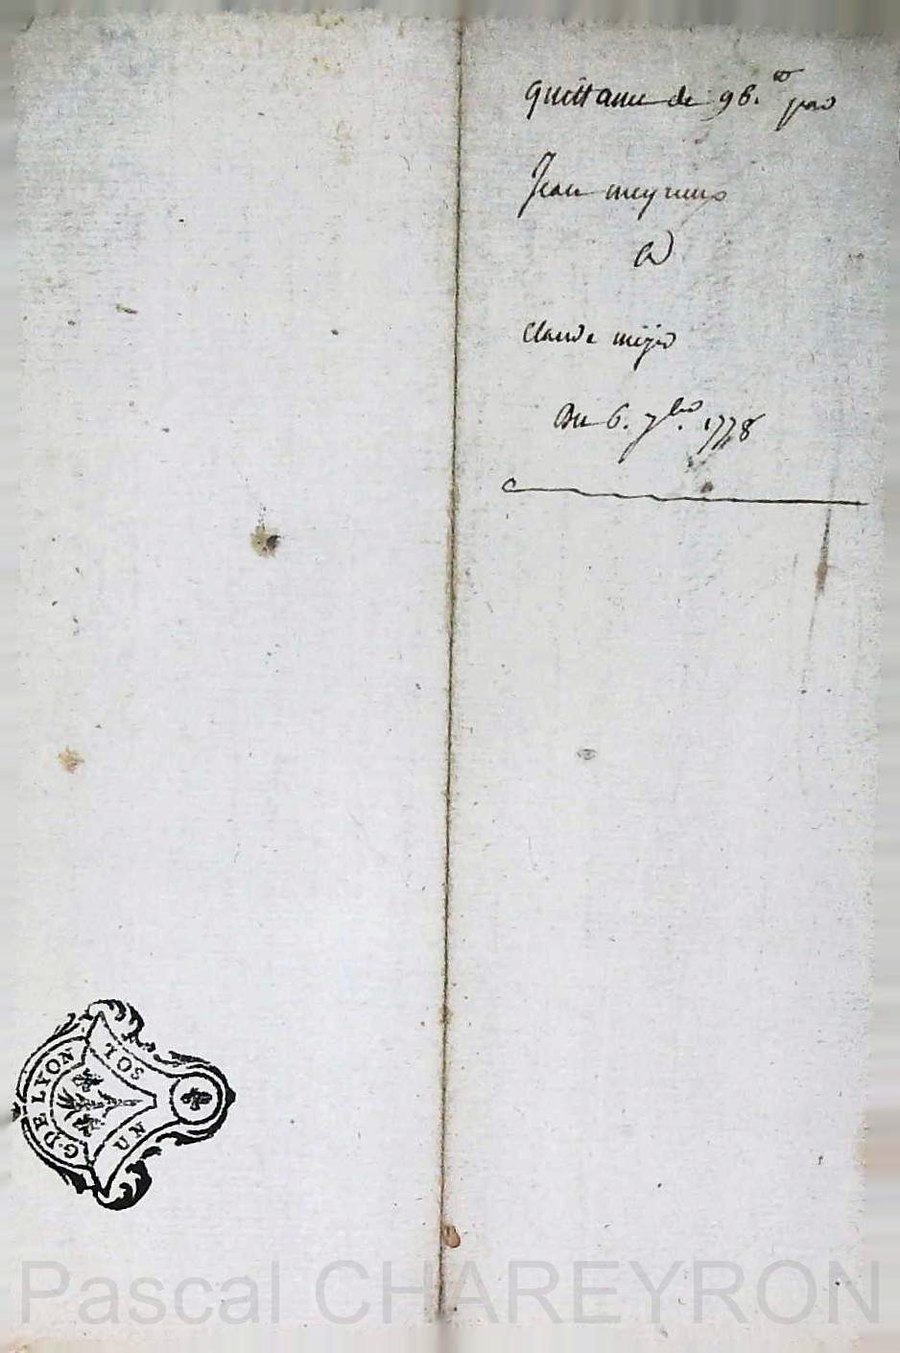 quittance de 96.ᵗᵗ par
Jean
a
claude
Du 6. 7bre. 1778
G. DE LYON
UN SOL
Pascal CHAREYRON